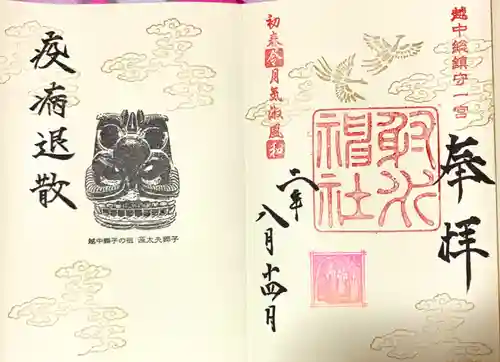 越中総鎮守一宮
奉拝
射水神社
初春令月気淑風和
二年
八月十四日
疫病退散
越中獅子の祖 源太夫獅子